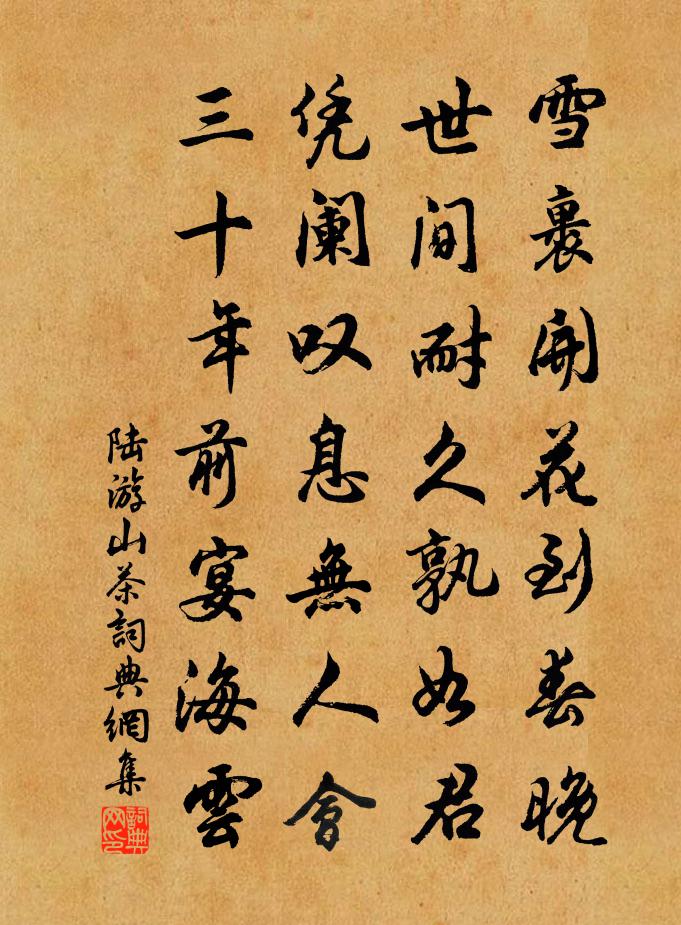 雪裏開花到春晚
世間耐久孰如君
凭闌叹息無人會
三十年前宴海雲
陆游山茶詞典網集
詞典網印